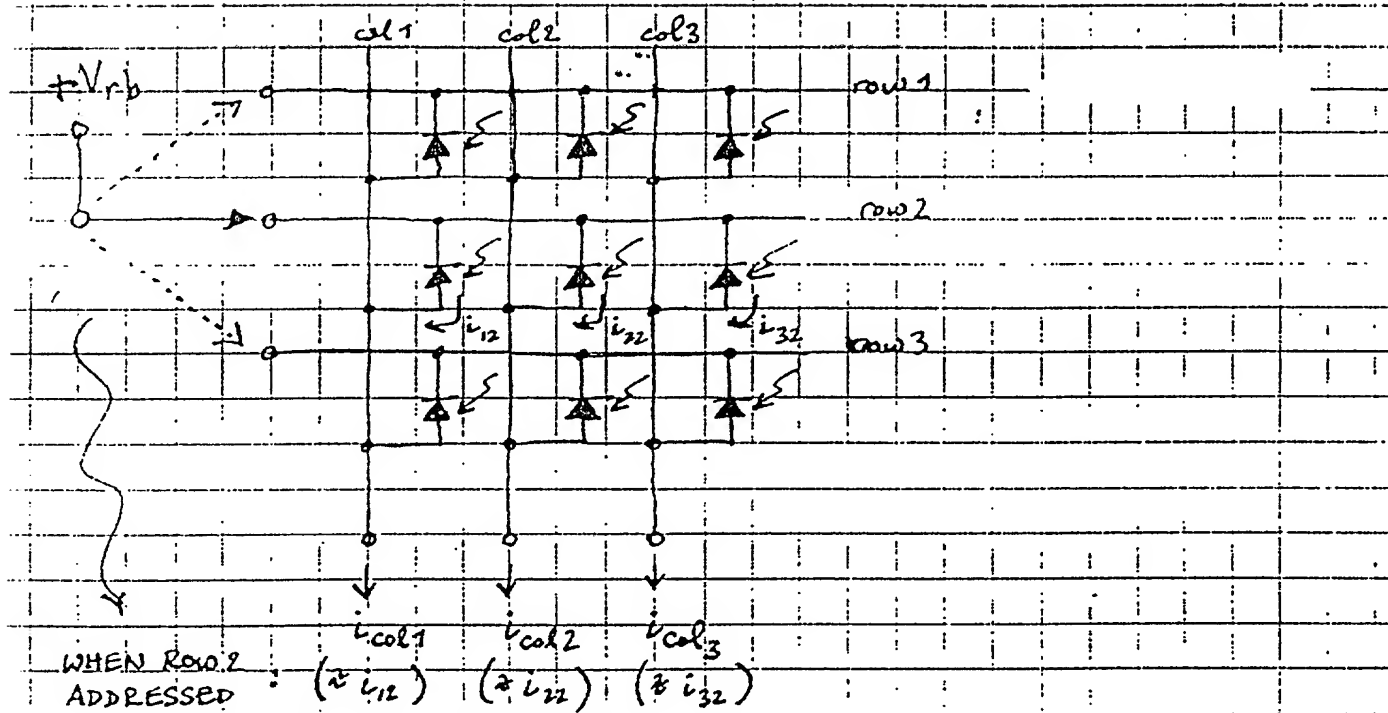 col1 col2 col3
+Vrb
row1
row2
i12 i22 i32
row3
icol1 icol2 icol3
WHEN ROW2 ADDRESSED : (≈ i12) (≈ i22) (≈ i32)